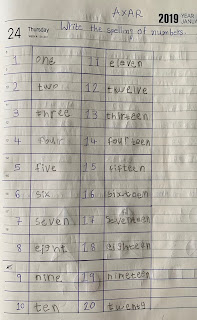 AXAR
2019 YEAR
JANU
24 Thursday
Write the spelling of numbers.
1 one 11 eleven
2 two 12 twelve
3 three 13 thirteen
4 four 14 fourteen
5 five 15 fifteen
6 six 16 sixteen
7 seven 17 seventeen
8 eight 18 eighteen
9 nine 19 nineteen
10 ten 20 twenty